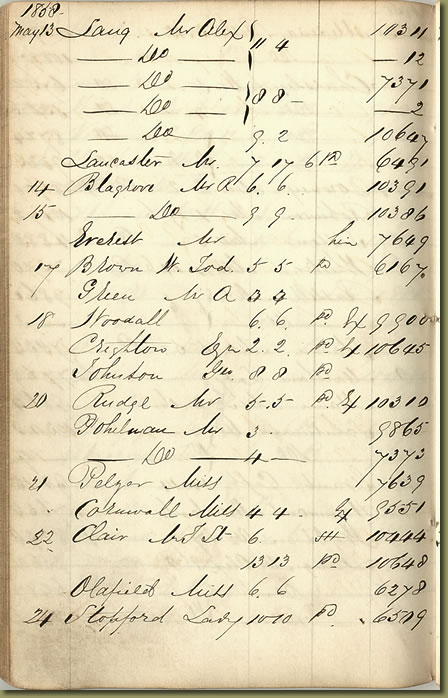 1868
May 13 Lang Mr Alex } 11 4 10311
— Do — — 12
— Do — } 8 8 — 7371
— Do — — 2
— Do — 9. 2 10647
Lancaster Mr. 7 17 6 Pd 6491
14 Blagrove Mr R 6. 6. 10391
15 — Do — 9 9. 10386
Everest Mr him 7649
17 Brown W. Tod. 5 5 Pd 6167
Green Mr A 4 4
18 Woodall 6. 6. Pd. Ex 9900
Crighton Esqr 2. 2. Pd Ex 10645
Johnson Geo. 8 8 Pd
20 Rudge Mr 5-5 Pd Ex 10310
Pohelman Mr 3 - 9865
— Do — 4 — 7373
21 Pelzer Miss 7639
Cornwall Miss 4 4. Ex 9551
22 Clair Mr St 6. 10444
13 13 Pd 10648
Oldfield Miss 6 6 6278
24 Stopford Lady 10 10 Pd. 6519